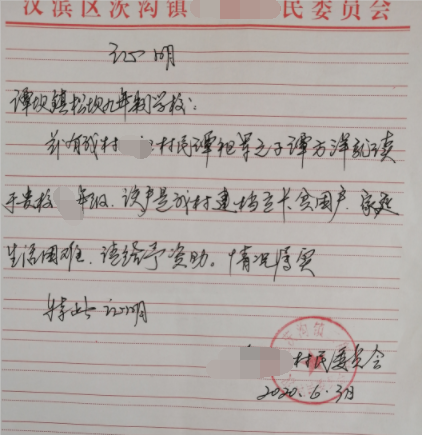 汉滨区茨沟镇 民委员会
证明
谭坝镇松坝九年制学校:
兹有我村 村民谭祖军之子谭方洋就读
于贵校 年级,该户是我村建档立卡贫困户,家庭
生活困难,请给予资助。情况属实
特此证明
村民委员会
2020.6.3日
茨沟镇